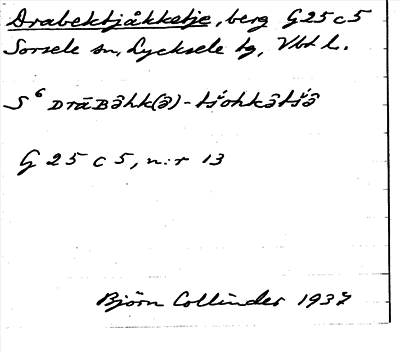 Drabektjåkketje, berg G25c5
Sorsele sn, Lycksele tg, Vbt l.
S⁶ DrāBə̂hk(ə̂)-tśohkə̂tśə̂
G 25 c 5, n:r 13
Björn Collinder 1937